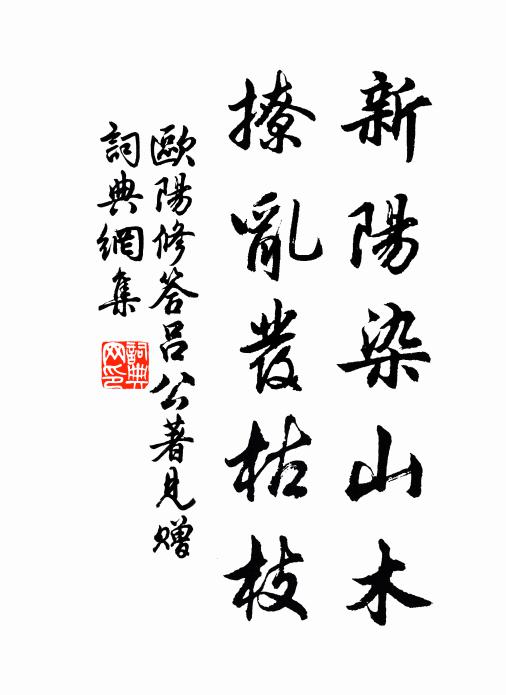 新陽染山木
撩亂發枯枝
歐陽修答呂公著見贈
詞典網集
詞典
網印